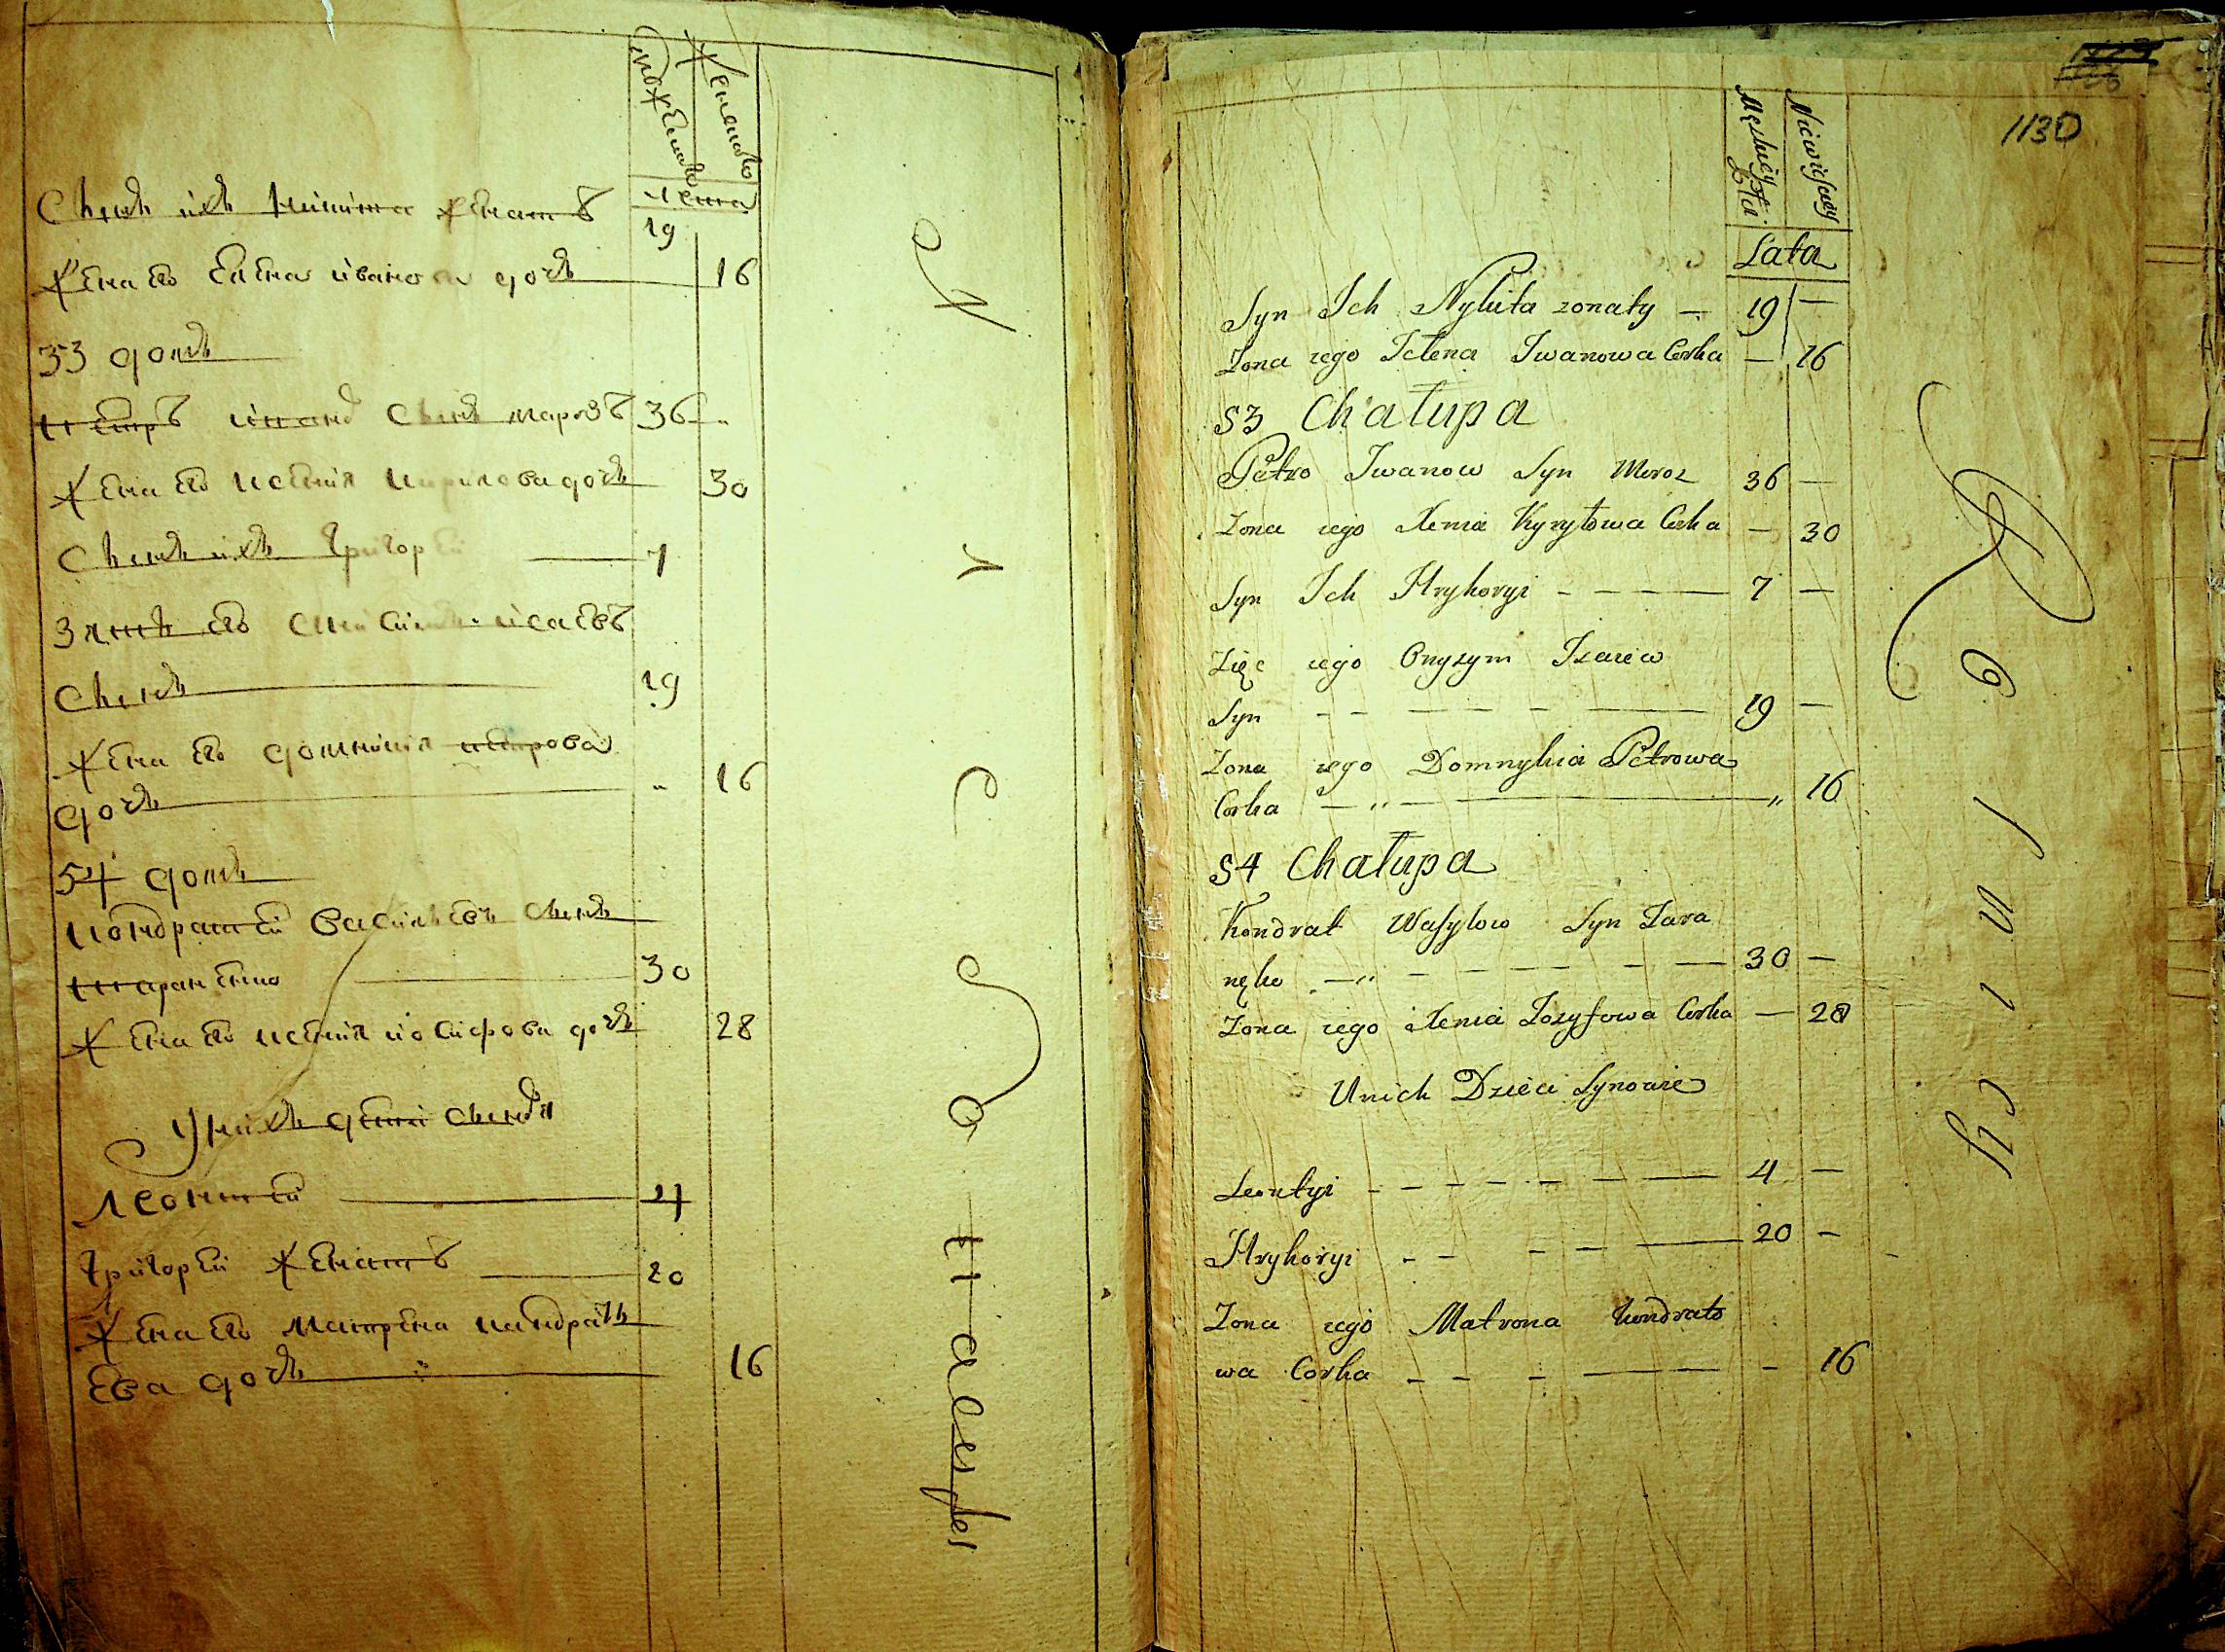 Женска
лета
Сынъ ихъ Никита женатъ 19
Жена его Елена Иванова дочь 16
53 домъ
Петръ Иванов сынъ Морозъ 36
Жена его Ксения Кирилова дочь 30
Сынъ ихъ Григорей 7
Зять его Исаевъ
Сынъ 19
Жена его Домникия Петрова
дочь 16
54 домъ
Кондратей Васильевъ сынъ
Тараненко 30
Жена его Ксения Иосифова дочь 28
У нихъ дети сыновя
Леонтей 4
Григорей женатъ 20
Жена его Матрена Кандрать
ева дочь 16
1130
Męskiey Płci
Niewiesciey
Lata
Syn Ich Nykita zonaty — 19 —
Zona iego Jelena Iwanowa Corka — 16
53 Chałupa
Petro Iwanow Syn Moroz 36 —
Zona iego Xenia Kyryłowa Corka — 30
Syn Ich Hryhoryi - - - — 7 —
Zięc iego Onyzym Izaiew
Syn - - - - - — 19 —
Zona iego Domnykia Petrowa
Corka — „ — — „ 16
54 Chałupa
Kondrat Wasylow Syn Tara
nęko — „ - - - - — 30 —
Zona iego Xenia Jozyfowa Corka — 28
Unich Dzieci Synowie
Leontyi - - - - - - — 4 —
Hryhoryi - - - - — 20 —
Zona iego Matrona Kondrato
wa Corka - - - — - 16